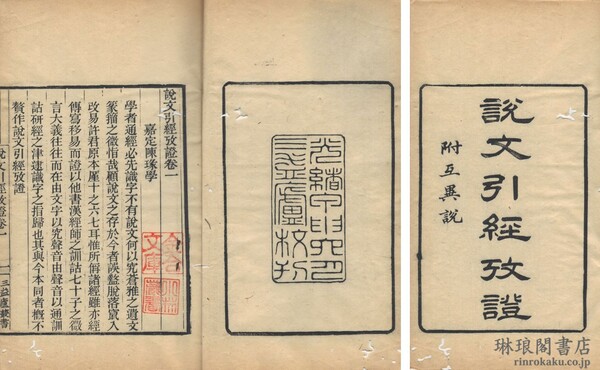 說文引經攷證
附互異說
光緒甲申六月
三益廬校刊
說文引經攷證卷一
嘉定陳瑑學
學者通經必先識字不有說文何以究蒼雅之遺文
篆籀之微恉哉顧說文之存於今者誤盭脫落竄入
改易許君原本厪十之六七耳惟所解諸經雖亦經
傳寫移易而證以他書漢經師之訓詁七十子之微
言大義往往而在由文字以究聲音由聲音以通訓
詁研經之津逮識字之指歸也其與今本同者概不
贅作說文引經攷證
說文引經攷證卷一
一
三益廬叢書
文庫
琳琅閣書店
rinrokaku.co.jp